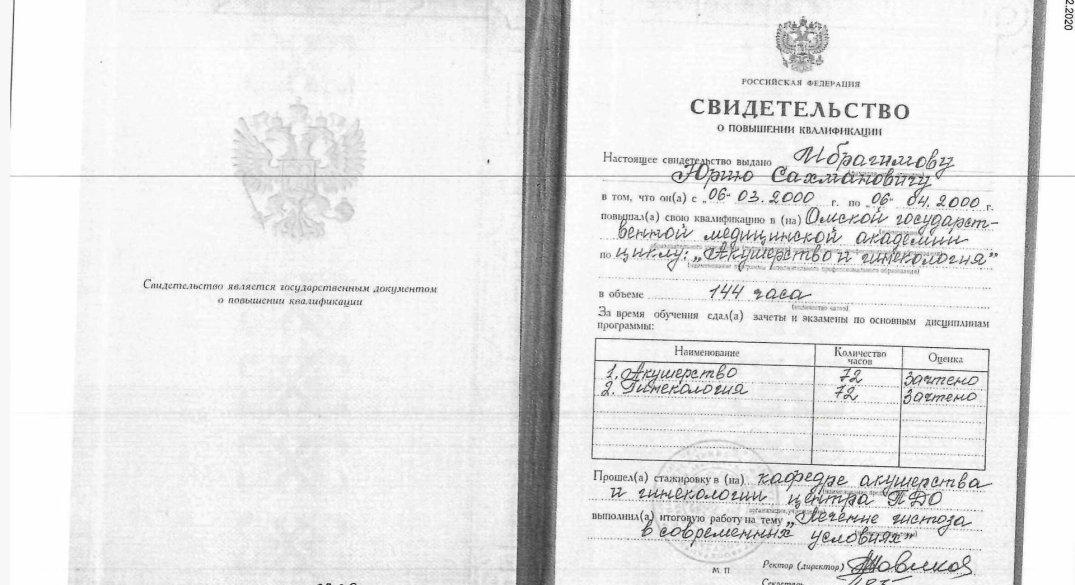 2.2020
Свидетельство является государственным документом
о повышении квалификации
РОССИЙСКАЯ ФЕДЕРАЦИЯ
СВИДЕТЕЛЬСТВО
О ПОВЫШЕНИИ КВАЛИФИКАЦИИ
Настоящее свидетельство выдано Ибрагимову
Юрию Сахмановичу
в том, что он(а) с „06“ 03. 2000 г. по „06“ 04. 2000 г.
повышал(а) свою квалификацию в (на) Омской государст-
венной медицинской академии
по циклу: „Акушерство и гинекология”
(наименование программы дополнительного профессионального образования)
в объеме 144 часа
(количество часов)
За время обучения сдал(а) зачеты и экзамены по основным дисциплинам
программы:
Наименование Количество часов Оценка
1. Акушерство 72 зачтено
2. Гинекология 72 зачтено
Прошел(а) стажировку в (на) кафедре акушерства
и гинекологии центра ПДО
выполнил(а) итоговую работу на тему „Лечение гистоза
в современных условиях”
М. П. Ректор (директор)
Секретарь